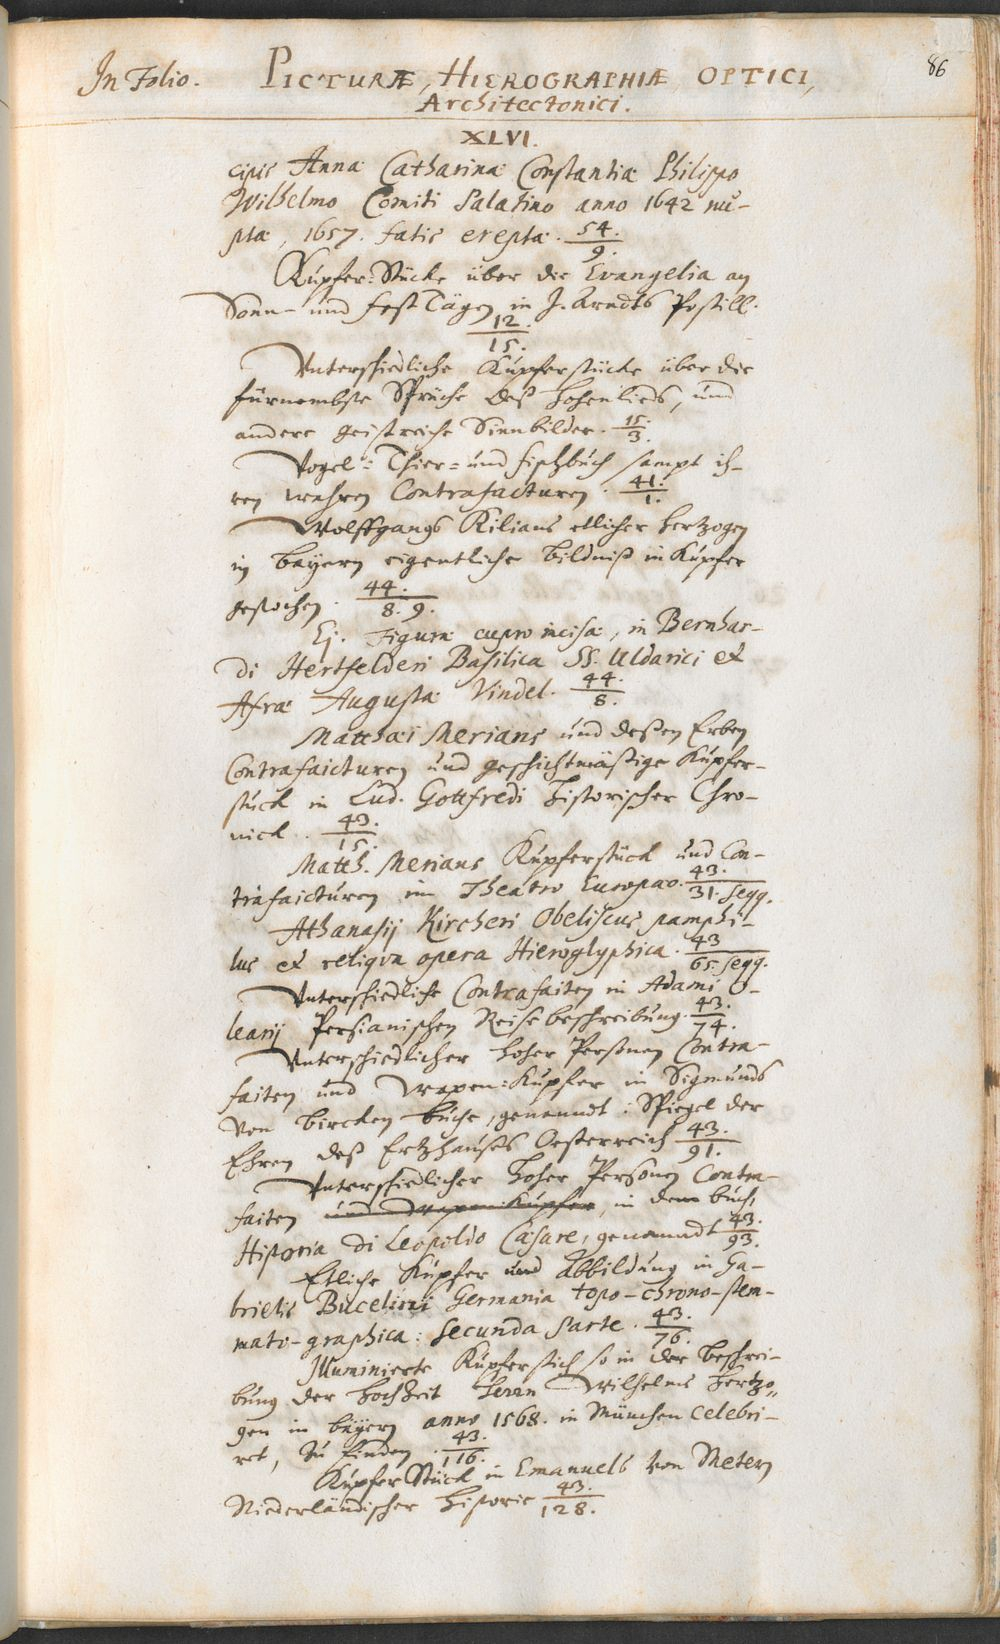 In Folio.
PICTURÆ, HIEROGRAPHIÆ OPTICI,
86
Architectonici.
XLVI.
cipis Annæ Catharinæ Constantiæ Philippo
Wilhelmo Comiti Palatino anno 1642 nu-
ptæ, 1657. fatis ereptæ. 54.
9.
Kupfer-Stücke über die Evangelia an
Sonn- und fest Tägen in J. Arndts Postill.
12.
15.
Unterschiedliche Kupferstücke über die
fürnembste Sprüche deß Hohenlieds, und
andere geistreiche Sinnbilder. 15.
3.
Vogel- Thier- und fischbuch sampt ih-
ren wahren Contrafacturen. 41.
1.
Wolffgangs Kilians etlicher Hertzogen
in Bayern eigentliche Bildniß in Kupfer
gestochen. 44.
8. 9.
Ej. Figuræ cupro incisæ, in Bernhar-
di Hertfelderi Basilica SS. Udalrici et
Afræ Augustæ Vindel. 44.
8.
Matthæi Merians und deßen Erben
Contrafaicturen und geschichtmäßige Kupfer-
stuck in Lud. Gottfredi Historischer Chro-
nick. 43.
15.
Matth. Merians Kupferstück und Con-
trafaicturen im Theatro Europæo. 43.
31. seqq.
Athanasij Kircheri Obeliscus pamphi-
lus et reliqua opera Hieroglyphica. 43
65. seqq.
Unterschiedliche Contrafaiten in Adami O-
learij Persianischen Reisebeschreibung. 43.
74.
Unterschiedlicher hoher Persönen Contra-
faiten und Wapen-Kupfer in Sigmunds
von Bircken buche, genanndt: Spiegel der
Ehren deß Ertzhauses Oesterreich 43.
91.
Unterschiedlicher hoher Personen Contra-
faiten und Wapen-Kupfer, in dem buch,
Historia di Leopoldo Cæsare, genanndt 43.
93.
Etliche Kupfer und Abbildung in Ga-
brielis Bucelini Germania topo-chrono-stem-
mato-graphica: secunda parte. 43.
76.
Illuminierte Kupferstich so in der beschrei-
bung der Hochzeit Herrn Wilhelms Hertzo-
gen in Bayern anno 1568. in München celebri-
ret, zu finden. 43.
116.
Kupfer Stück in Emanuels von Metern
Niederländischer Historie 43.
128.